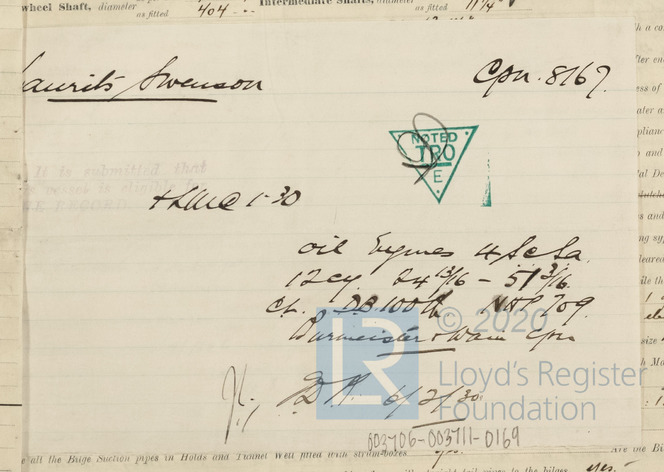 wheel Shaft, diameter as fitted 404 Intermediate Shafts, diameter as fitted 11¼
Laurits Swenson Cpn. 8167.
NOTED
TRO
E
It is submitted that
vessel is eligible
BE RECORD
+LMC 1-30
Oil Engines 4 Sc Sa.
12 cy. 24 13/16 - 51 3/16.
CL. DB 100 lb NHP 709.
Burmeister & Wain Cpn
6/2/30
LR © 2020
Lloyd's Register
Foundation
003706-003711-0169
all the Bilge Suction pipes in Holds and Tunnel Well fitted with strum-boxes yes. Are the Bi